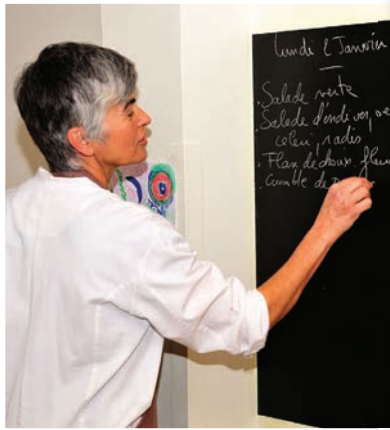 lundi 2 Janvier
. Salade verte
. Salade d'endives,
céleri, radis
. Flan de choux fleur
. Crumble de